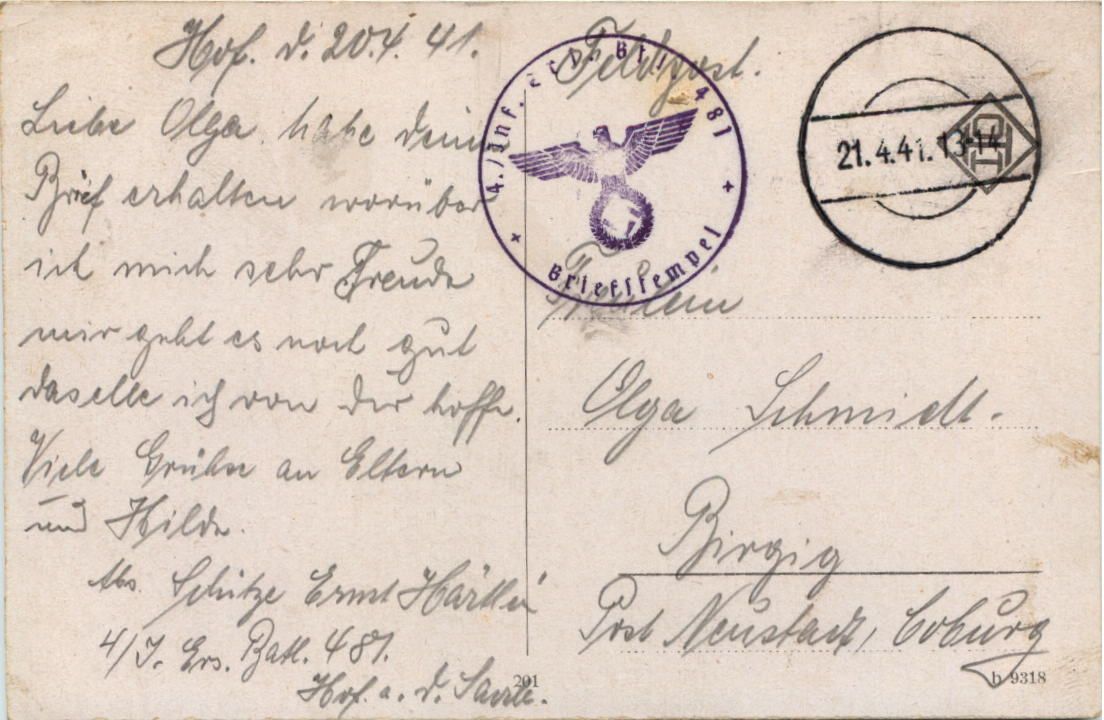 Hof. d. 20.4. 41.
Liebe Olga, habe dein
Brief erhalten worüber
ich mich sehr Freude
mir geht es noch gut
daselbe ich von dir hoffe.
Viele Grüße an Eltern
und Hilde.
Abs. Schütze Ernst
4/J. Ers. Batl. 481.
Hof. a. d. Saale.
201
Feldpost.
4./Inf. Ers. Btl. 481
Briefstempel
21.4.41.13-14
HOF
Fräulein
Olga Schmidt.
Birgig
Post Neustadt, Coburg
b 9318